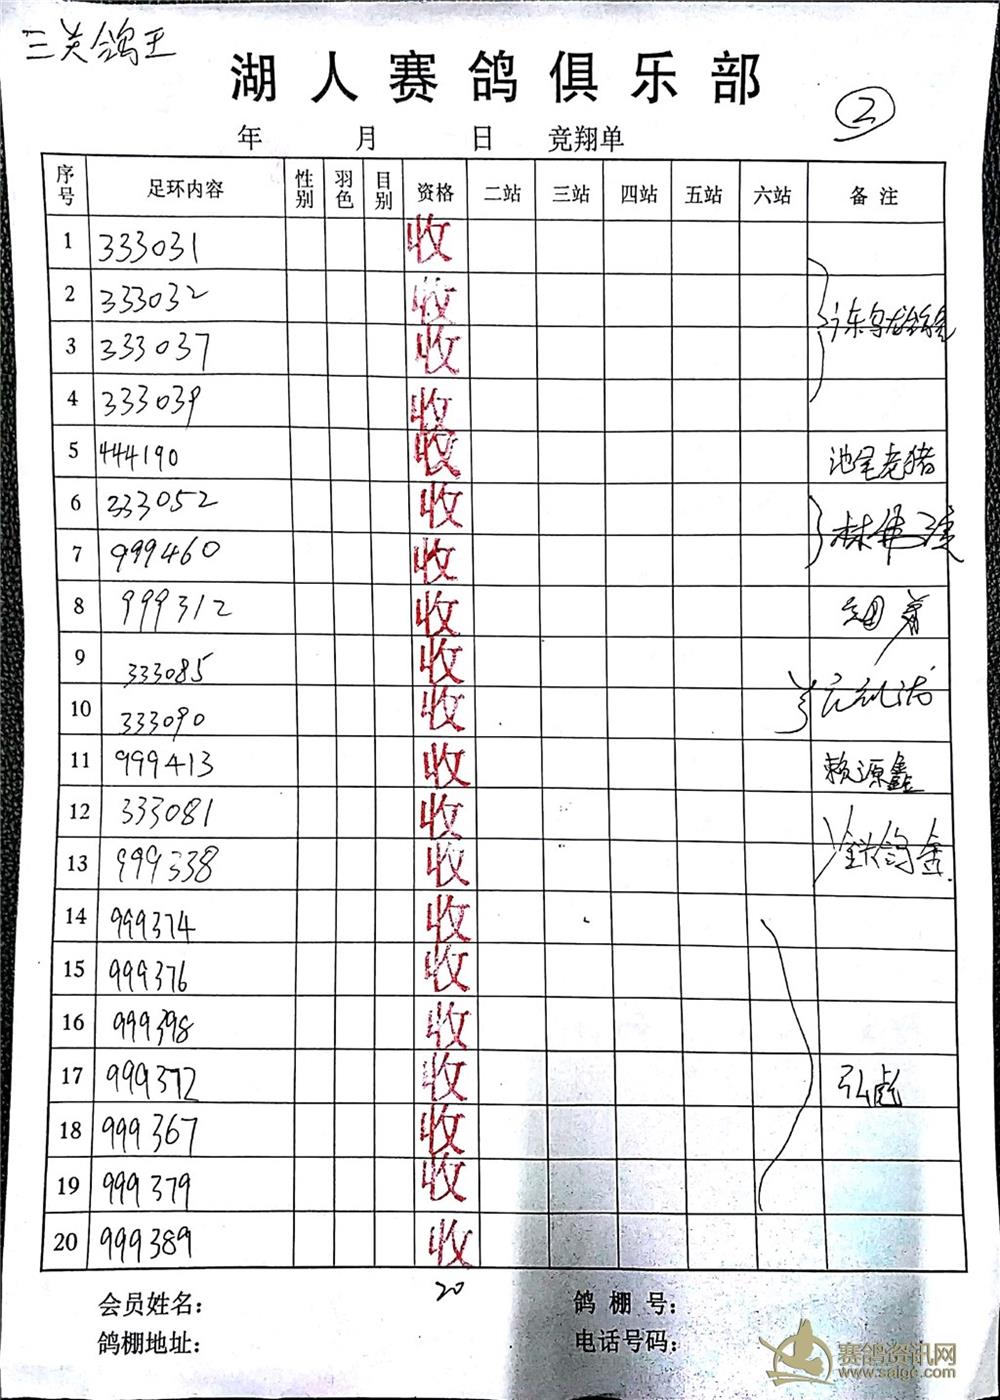 三关鸽王
湖人赛鸽俱乐部
②
年 月 日 竞翔单
序号 足环内容 性别 羽色 目别 资格 二站 三站 四站 五站 六站 备注
1 333031 收
2 333032 收
3 333037 收
4 333039 收
5 444190 收 池尾老猪
6 333052 收
7 999460 收
8 999312 收
9 333085 收
10 333090 收
11 999413 收 赖源鑫
12 333081 收
13 999338 收
14 999374 收
15 999376 收
16 999398 收
17 999372 收 弘彪
18 999367 收
19 999379 收
20 999389 收
20
会员姓名： 鸽棚号：
鸽棚地址： 电话号码：
赛鸽资讯网
www.saigc.com